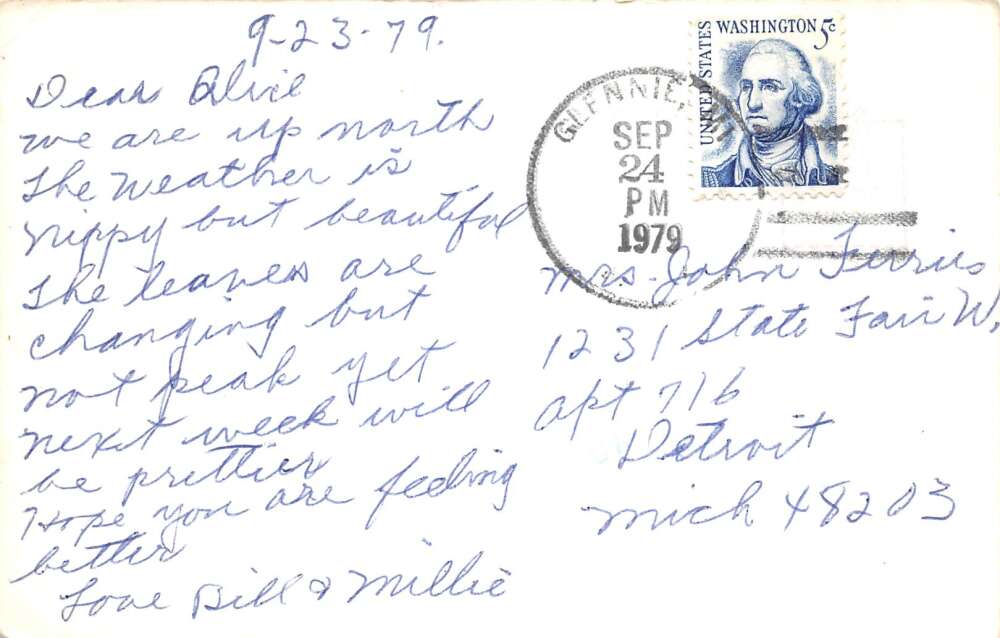 9-23-79.
Dear Olive
we are up north
The weather is
nippy but beautiful
The leaves are
changing but
not peak yet
next week will
be prettier
Hope you are feeling
better
Love Bill & Millie
UNITED STATES
WASHINGTON 5c
GLENNIE, MI
SEP
24
PM
1979
Mrs. John Ferris
1231 State Fair W.
apt 716
Detroit
Mich 48203